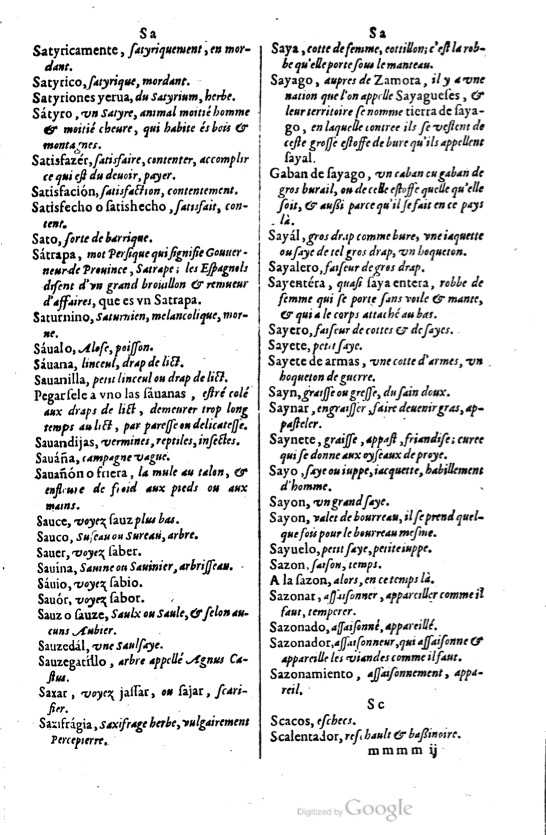 Sa
Satyricamente, satyriquement, en mor-
dant.
Satyrico, satyrique, mordant.
Satyriones yerua, du Satyrium, herbe.
Sátyro, vn Satyre, animal moitié homme
& moitié cheure, qui habite és bois &
montagnes.
Satisfazér, satisfaire, contenter, accomplir
ce qui est du deuoir, payer.
Satisfación, satisfaction, contentement.
Satisfecho o satishecho, satisfait, con-
tent.
Sato, sorte de barrique.
Sátrapa, mot Persique qui signifie Gouuer-
neur de Prouince, Satrape; les Espagnols
disent d'vn grand brouillon & remueur
d'affaires, que es vn Satrapa.
Saturnino, Saturnien, melancolique, mor-
ne.
Sáualo, Alose, poisson.
Sáuana, linceul, drap de lict.
Sauanilla, petit linceul ou drap de lict.
Pegarsele a vno las sáuanas, estré colé
aux draps de lict, demeurer trop long
temps au lict, par paresse ou delicatesse.
Sauandijas, vermines, reptiles, insectes.
Sauáña, campagne vague.
Sauañón o friera, la mule au talon, &
enfleure de froid aux pieds ou aux
mains.
Sauce, voyez sauz plus bas.
Sauco, Suseau ou Sureau, arbre.
Sauer, voyez saber.
Sauina, Sauine ou Sauinier, arbrisseau.
Sáuio, voyez sabio.
Sauór, voyez sabor.
Sauz o sauze, Saulx ou Saule, & selon au-
cuns Aubier.
Sauzedál, vne Saulsaye.
Sauzegatillo, arbre appellé Agnus Ca-
stus.
Saxar, voyez jassar, ou sajar, scari-
fier.
Saxifrágia, Saxifrage herbe, vulgairement
Percepierre.
Sa
Saya, cotte de femme, cottillon; c'est la rob-
be qu'elle porte sous le manteau.
Sayago, aupres de Zamora, il y a vne
nation que l'on appelle Sayagueses, &
leur territoire se nomme tierra de saya-
go, en laquelle contree ils se vestent de
ceste grosse estoffe de bure qu'ils appellent
sayal.
Gaban de sayago, vn caban ou gaban de
gros burail, ou de celle estoffe quelle qu'elle
soit, & aussi parce qu'il se fait en ce pays
là.
Sayál, gros drap comme bure, vne iaquette
ou saye de tel gros drap, vn hoqueton.
Sayalero, faiseur de gros drap.
Sayentéra, quasi saya entera, robbe de
femme qui se porte sans voile & mante,
& qui a le corps attaché au bas.
Sayero, faiseur de cottes & de sayes.
Sayete, petit saye.
Sayete de armas, vne cotte d'armes, vn
hoqueton de guerre.
Sayn, graisse ou gresse, du sain doux.
Saynar, engraisser, faire deuenir gras, ap-
pasteler.
Saynete, graisse, appast, friandise; curee
qui se donne aux oyseaux de proye.
Sayo, saye ou iuppe, iacquette, habillement
d'homme.
Sayon, vn grand saye.
Sayon, valet de bourreau, il se prend quel-
que fois pour le bourreau mesme.
Sayuelo, petit saye, petite iuppe.
Sazon, saison, temps.
A la sazon, alors, en ce temps là.
Sazonar, assaisonner, appareiller comme il
faut, temperer.
Sazonado, assaisonné, appareillé.
Sazonador, assaisonneur, qui assaisonne &
appareille les viandes comme il faut.
Sazonamiento, assaisonnement, appa-
reil.
Sc
Scacos, eschecs.
Scalentador, reschault & bassinoire.
mmmm ij
Digitized by Google